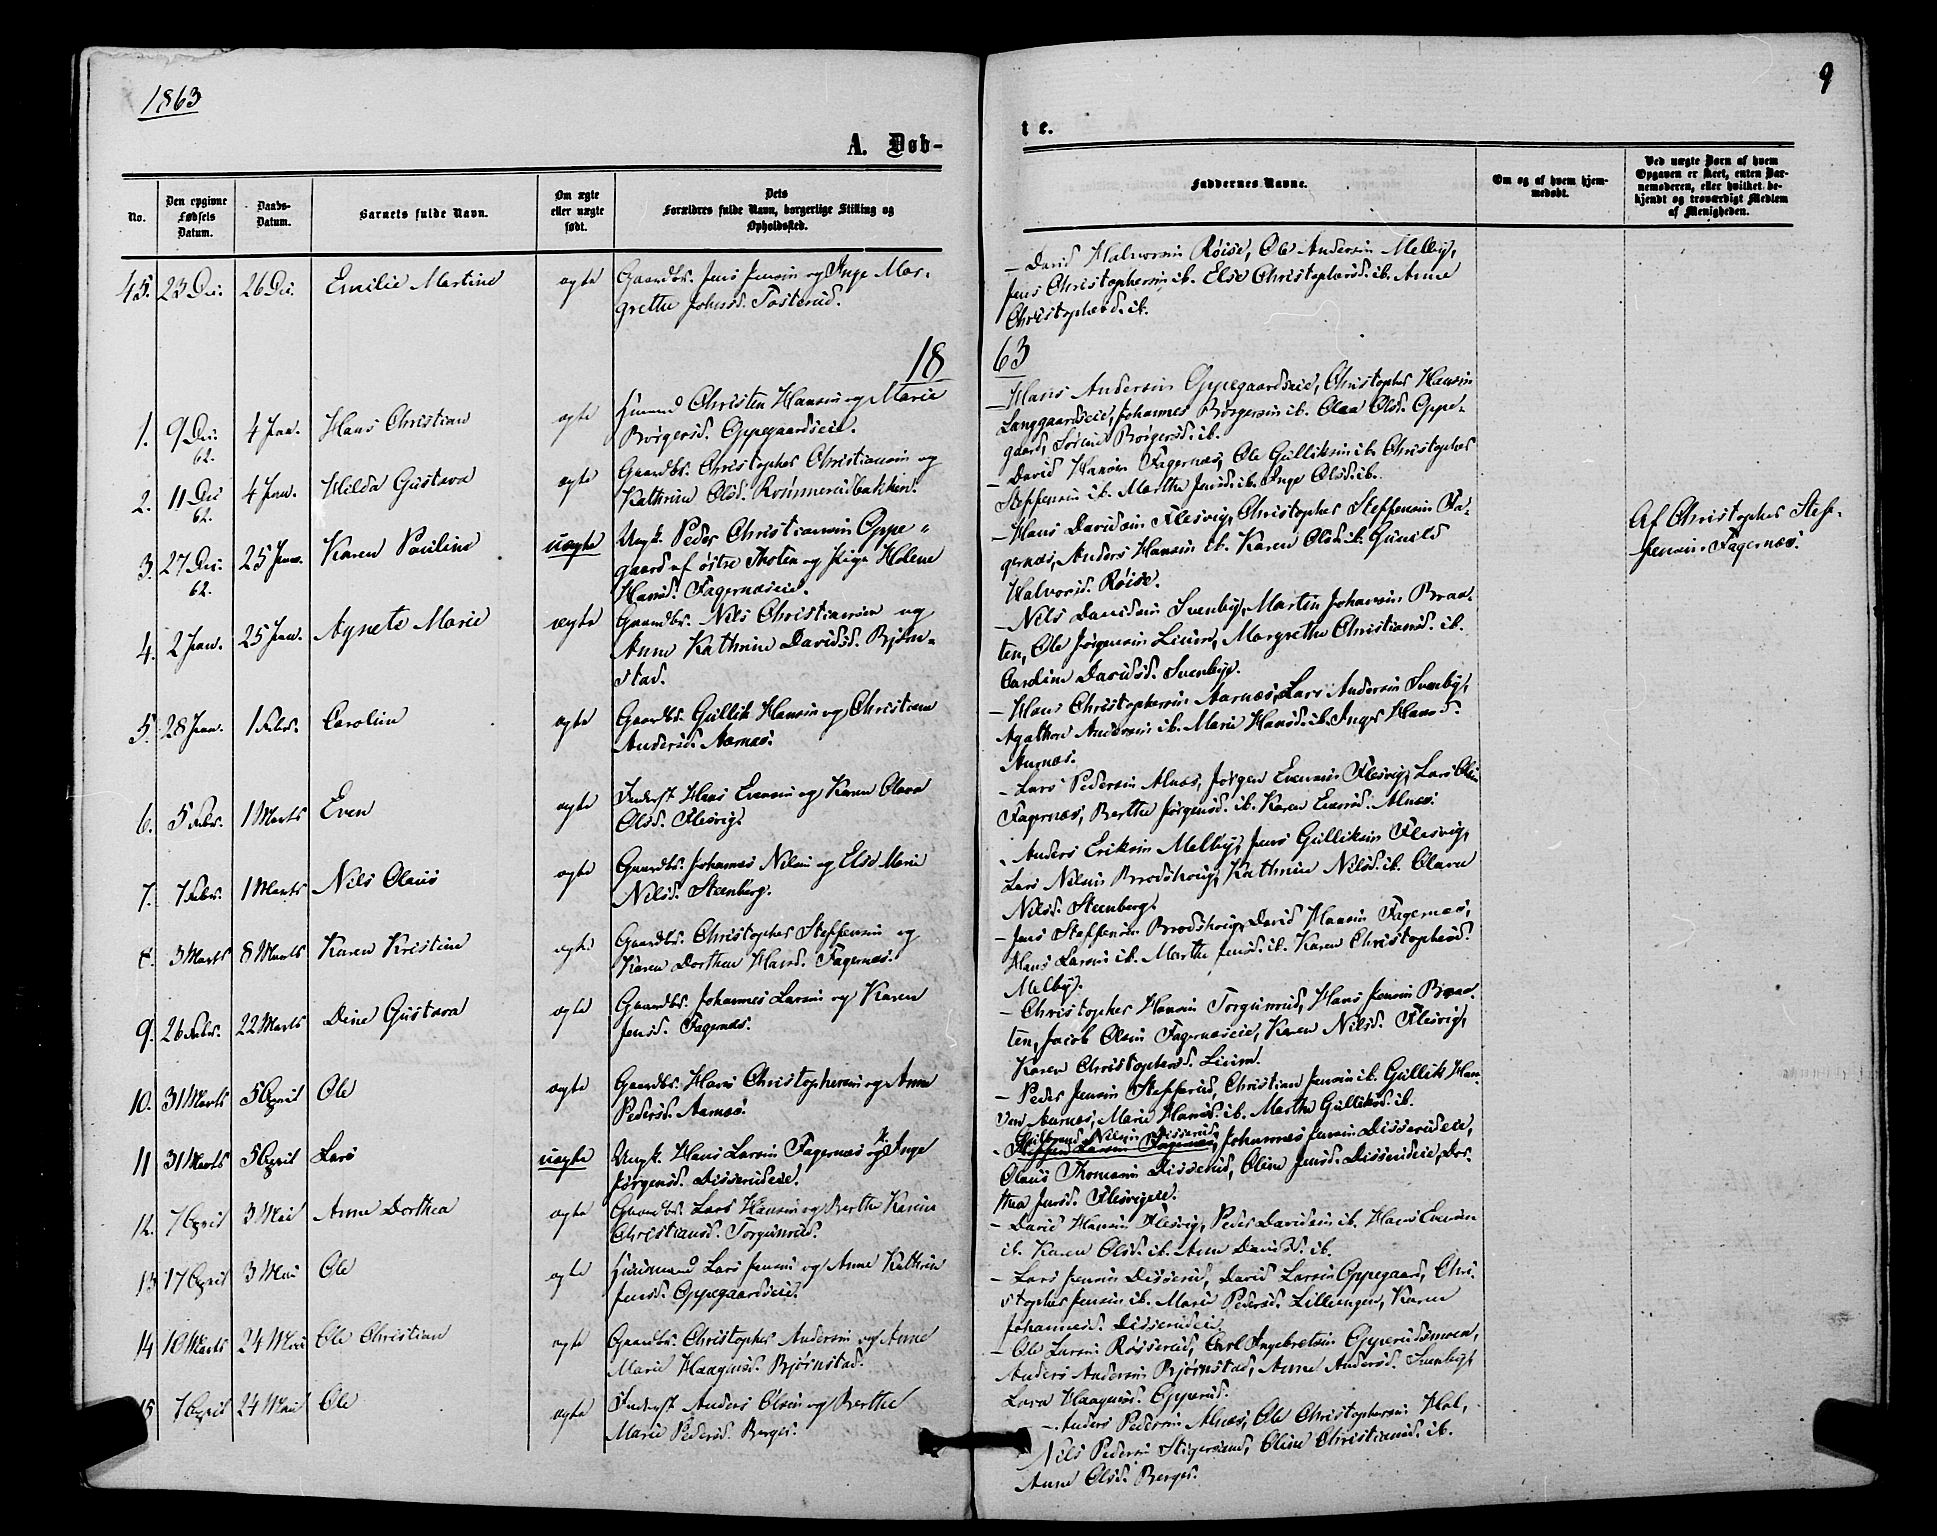 1863
9
A. Døb-
te.
No.
Den opgivne Fødsels Datum.
Daabs-Datum.
Barnets fulde Navn.
Om ægte eller uægte født.
Dets Forældres fulde Navn, borgerlige Stilling og Opholdssted.
Faddernes Navne.
Om og af hvem hjemmedøbt.
Ved uægte Børn af hvem Opgaven er skeet, enten Barnemoderen, eller hvilket bekjendt og troværdigt Medlem af Menigheden.
45. 23 Dec. 26 Dec. Emilie Martine ægte Gaardbr. Jens Jensen og Inge Mar-
grethe Johnsd. Tosterud.
- David Halvorsen Røise, Ole Andersen Melby,
Jens Christophersen ib. Else Christophersd. ib. Anne
Christophersd. ib.
1863
1. 9 Dec. 62. 4 Jan. Hans Christian ægte Huusmand Christen Hansen og Marie
Børgersd. Oppegaardseie.
- Hans Andersen Oppegaardseie, Christopher Hansen
Langgaardseie, Johannes Børgersen ib. Olaa Olsd. Oppe-
gaard, Sørine Børgersd. ib.
2. 11 Dec 62. 4 Jan. Hilda Gustava ægte Gaardbr. Christopher Christiansen og
Kathrine Olsd. Rønnerudbakken.
- David Hansen Fagernæs, Ole Gulliksen ib. Christopher
Steffensen ib. Marthe Jensd. ib. Inge Olsd. ib.
3. 27 Dec. 62. 25 Jan. Karen Pauline uægte Ungk. Peder Christiansen Oppe-
gaard af østre Thoten og Pige Helene
Hansd. Fagernæseie.
- Hans Davidsen Flesvig, Christopher Steffensen Fa-
gernæs, Anders Hansen ib. Karen Olsd. ib. Gunild
Halvorsd. Røise.
Af Christopher Stef-
fensen Fagernæs.
4. 2 Jan. 25 Jan. Agnete Marie ægte Gaardbr. Nils Christiansen og
Anne Kathrine Davidsd. Bjørn-
stad.
- Nils Davidsen Svenby, Martin Johansen Braa-
ten, Ole Jørgensen Lium, Margrethe Christiansd. ib.
Caroline Davidsd. Svenbye.
5. 28 Jan. 1 Febr. Caroline ægte Gaardbr. Gullik Hansen og Christiane
Andersd. Aarnæs.
- Hans Christophersen Aarnæs, Lars Andersen Svenby,
Agathon Andersen ib. Marie Hansd. ib. Inger Hansd.
Aarnæs.
6. 5 Febr. 1 Marts Even ægte Inderst Hans Evensen og Karen Olava
Olsd. Flesvig.
- Lars Pedersen Alnæs, Jørgen Evensen Flesvig, Lars Olsen
Fagernæs, Berthe Jørgensd. ib. Karen Evensd. Alnæs.
7. 7 Febr. 1 Marts Nils Olaus ægte Gaardbr. Johannes Nilsen og Else Marie
Nilsd. Steenberg.
- Anders Eriksen Melby, Jens Gulliksen Flesvig,
Lars Nilsen Brodshoug, Kathrine Nilsd. ib. Olava
Nilsd. Steenberg.
8. 3 Marts 8 Marts Karen Kristine ægte Gaardbr. Christopher Steffensen og
Karen Dorthea Hansd. Fagernæs.
- Jens Steffensen Brodshoug, David Hansen Fagernæs,
Hans Larsen ib. Marthe Jensd. ib. Karen Christophersd.
Melby.
9. 26 Febr. 22 Marts Dine Gustava ægte Gaardbr. Johannes Larsen og Karen
Jensd. Fagernæs.
- Christopher Hansen Torgunrud, Hans Jensen Braa-
ten, Jacob Olsen Fagernæseie, Karen Nilsd. Flesvig,
Karen Christophersd. Lium.
10. 31 Marts 5 April Ole ægte Gaardbr. Hans Christophersen og Anne
Pedersd. Aarnæs.
- Peder Jensen Stefferud, Christian Jensen ib. Gullik Han-
sen Aarnæs, Marie Hansd. ib. Marthe Gulliksd. ib.
11 31 Marts 5 April Lars uægte Ungk. Hans Larsen Fagernæs og P. Inge
Jørgensd. Disserudeie.
Gulbrand Nilsen Disserud,
- Steffen Larsen Fagernæs, Johannes Jensen Disserudeie,
Olaus Thomasen Disserud, Oline Jensd. Disserudeie, Dor-
thea Jensd. Flesvigeie.
12. 7 April 3 Mai Anne Dorthea ægte Gaardbr. Lars Hansen og Berthe Karine
Christiansd. Torgunrud.
- David Hansen Flesvig, Peder Davidsen ib. Hans Evensen
ib. Karen Olsd. ib. Anne Davidsd. ib.
13 17 April 3 Mai Ole ægte Huusmand Lars Jensen og Anne Kathrine
Jensd. Oppegaardseie.
- Lars Jensen Disserud, David Larsen Oppegaard, Chri-
stopher Jensen ib. Marie Pedersd. Lillieengen, Karen
Johannesd. Disserudeie.
14 10 Marts 24 Mai Ole Christian ægte Gaardbr. Christopher Andersen og Anne
Marie Haagensd. Bjørnstad.
- Ole Larsen Røsserud, Carl Ingebretsen Opperudsmoen,
Anders Andersen Bjørnstad, Anne Andersd. Svenby,
Lova Haagensd. Opperud.
15 7 April 24 Mai Ole ægte Inderst Anders Olsen og Berthe
Marie Pedersd. Berger.
- Anders Pedersen Alnæs, Ole Christophersen Hol,
Nils Pedersen Stigersand, Oline Christiansd. ib.
Anne Olsd. Berger.